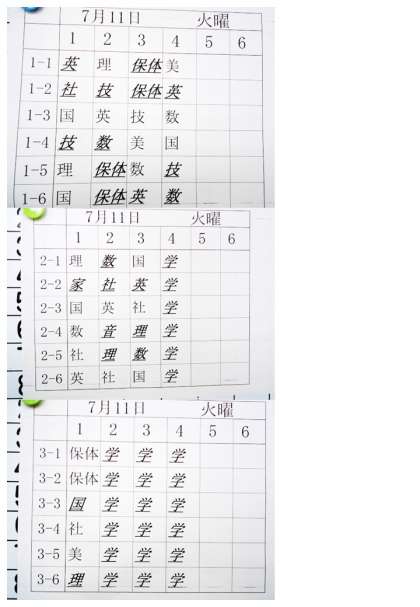 7月11日 火曜
1 2 3 4 5 6
1-1 英 理 保体 美
1-2 社 技 保体 英
1-3 国 英 技 数
1-4 技 数 美 国
1-5 理 保体 数 技
1-6 国 保体 英 数
7月11日 火曜
1 2 3 4 5 6
2-1 理 数 国 学
2-2 家 社 英 学
2-3 国 英 社 学
2-4 数 音 理 学
2-5 社 理 数 学
2-6 英 社 国 学
7月11日 火曜
1 2 3 4 5 6
3-1 保体 学 学 学
3-2 保体 学 学 学
3-3 国 学 学 学
3-4 社 学 学 学
3-5 美 学 学 学
3-6 理 学 学 学